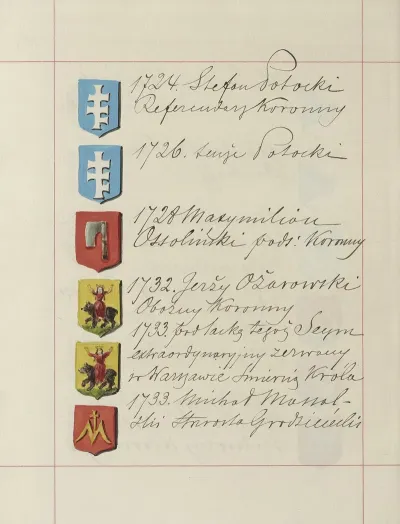 1724. Stefan Potocki
Referendarz Koronny
1726. tenże Potocki
1728 Maxymilian
Ossoliński pods: Koronny
1732. Jerzy Ożarowski
Oboźny Koronny
1733. pod laską tegoż Seym
extraordynaryjny zerwany
w Warszawie śmiercią Króla
1733. Michał Massal-
ski Starosta Grodzieński